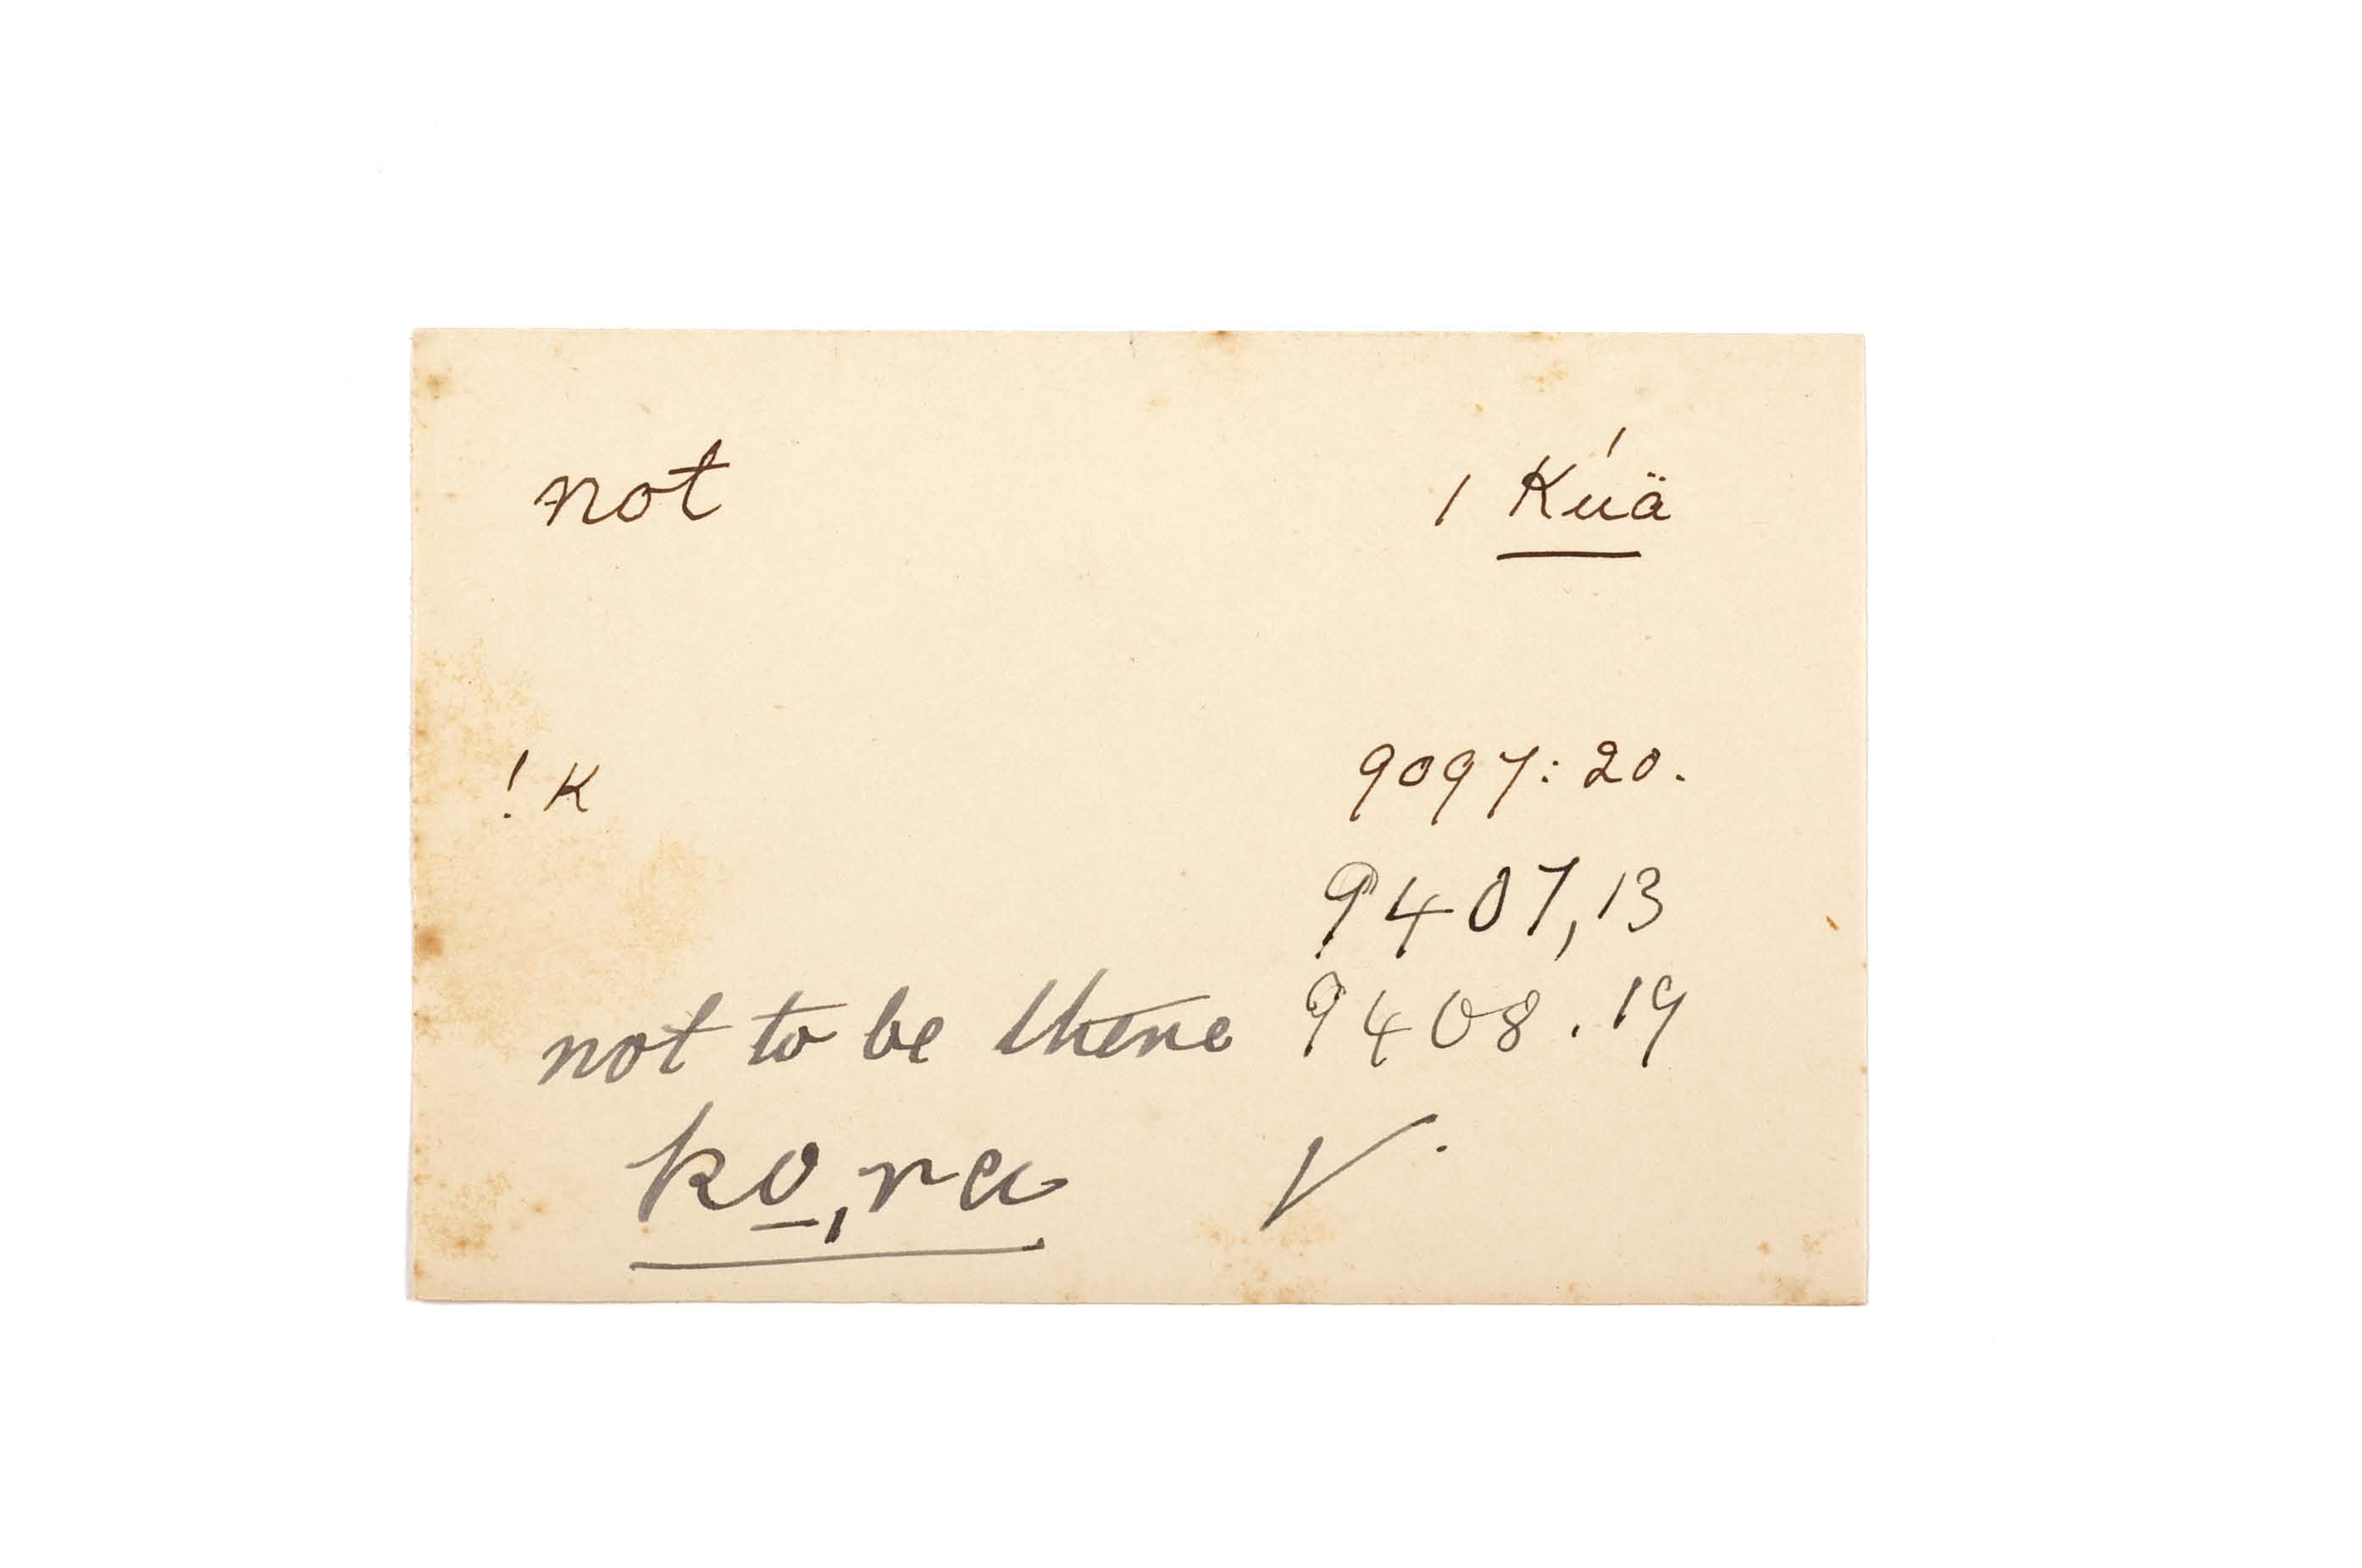 not / Kúä
! K 9097: 20.
9407, 13
not to be there 9408. 19
ko,ra √.